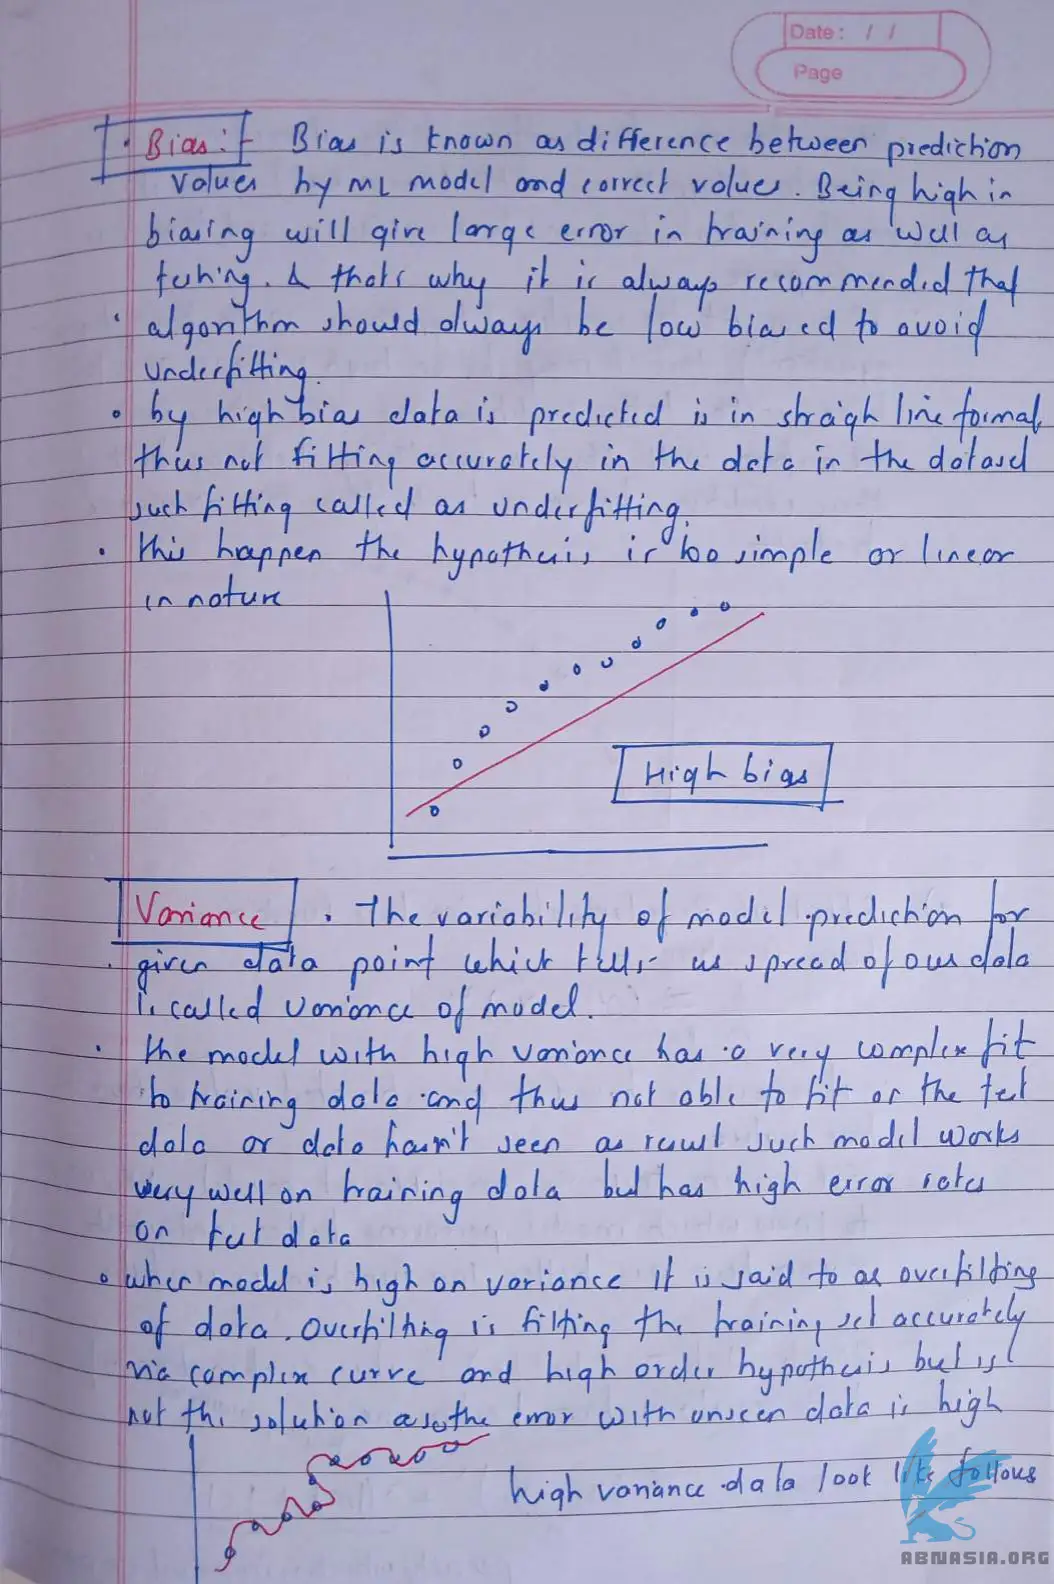 Date: / /
Page
Bias:- Bias is known as difference between prediction
values by ML model and correct values. Being high in
biasing will give large error in training as well as
testing. & thats why it is always recommended that
algorithm should always be low biased to avoid
underfitting.
by high bias data is predicted is in straigh line format,
thus not fitting accurately in the data in the dataset
such fitting called as underfitting.
this happen the hypothesis is too simple or linear
in nature
High bias
Variance . The variability of model prediction for
given data point which tells us spread of our data
is called variance of model.
the model with high variance has a very complex fit
to training data and thus not able to fit on the test
data or data hasn't seen as result such model works
very well on training data but has high error rates
on test data
when model is high on variance it is said to as overfitting
of data. Overfitting is fitting the training set accurately
via complex curve and high order hypothesis but is
not the solution as the error with unseen data is high
high variance data look like follows
ABNASIA.ORG